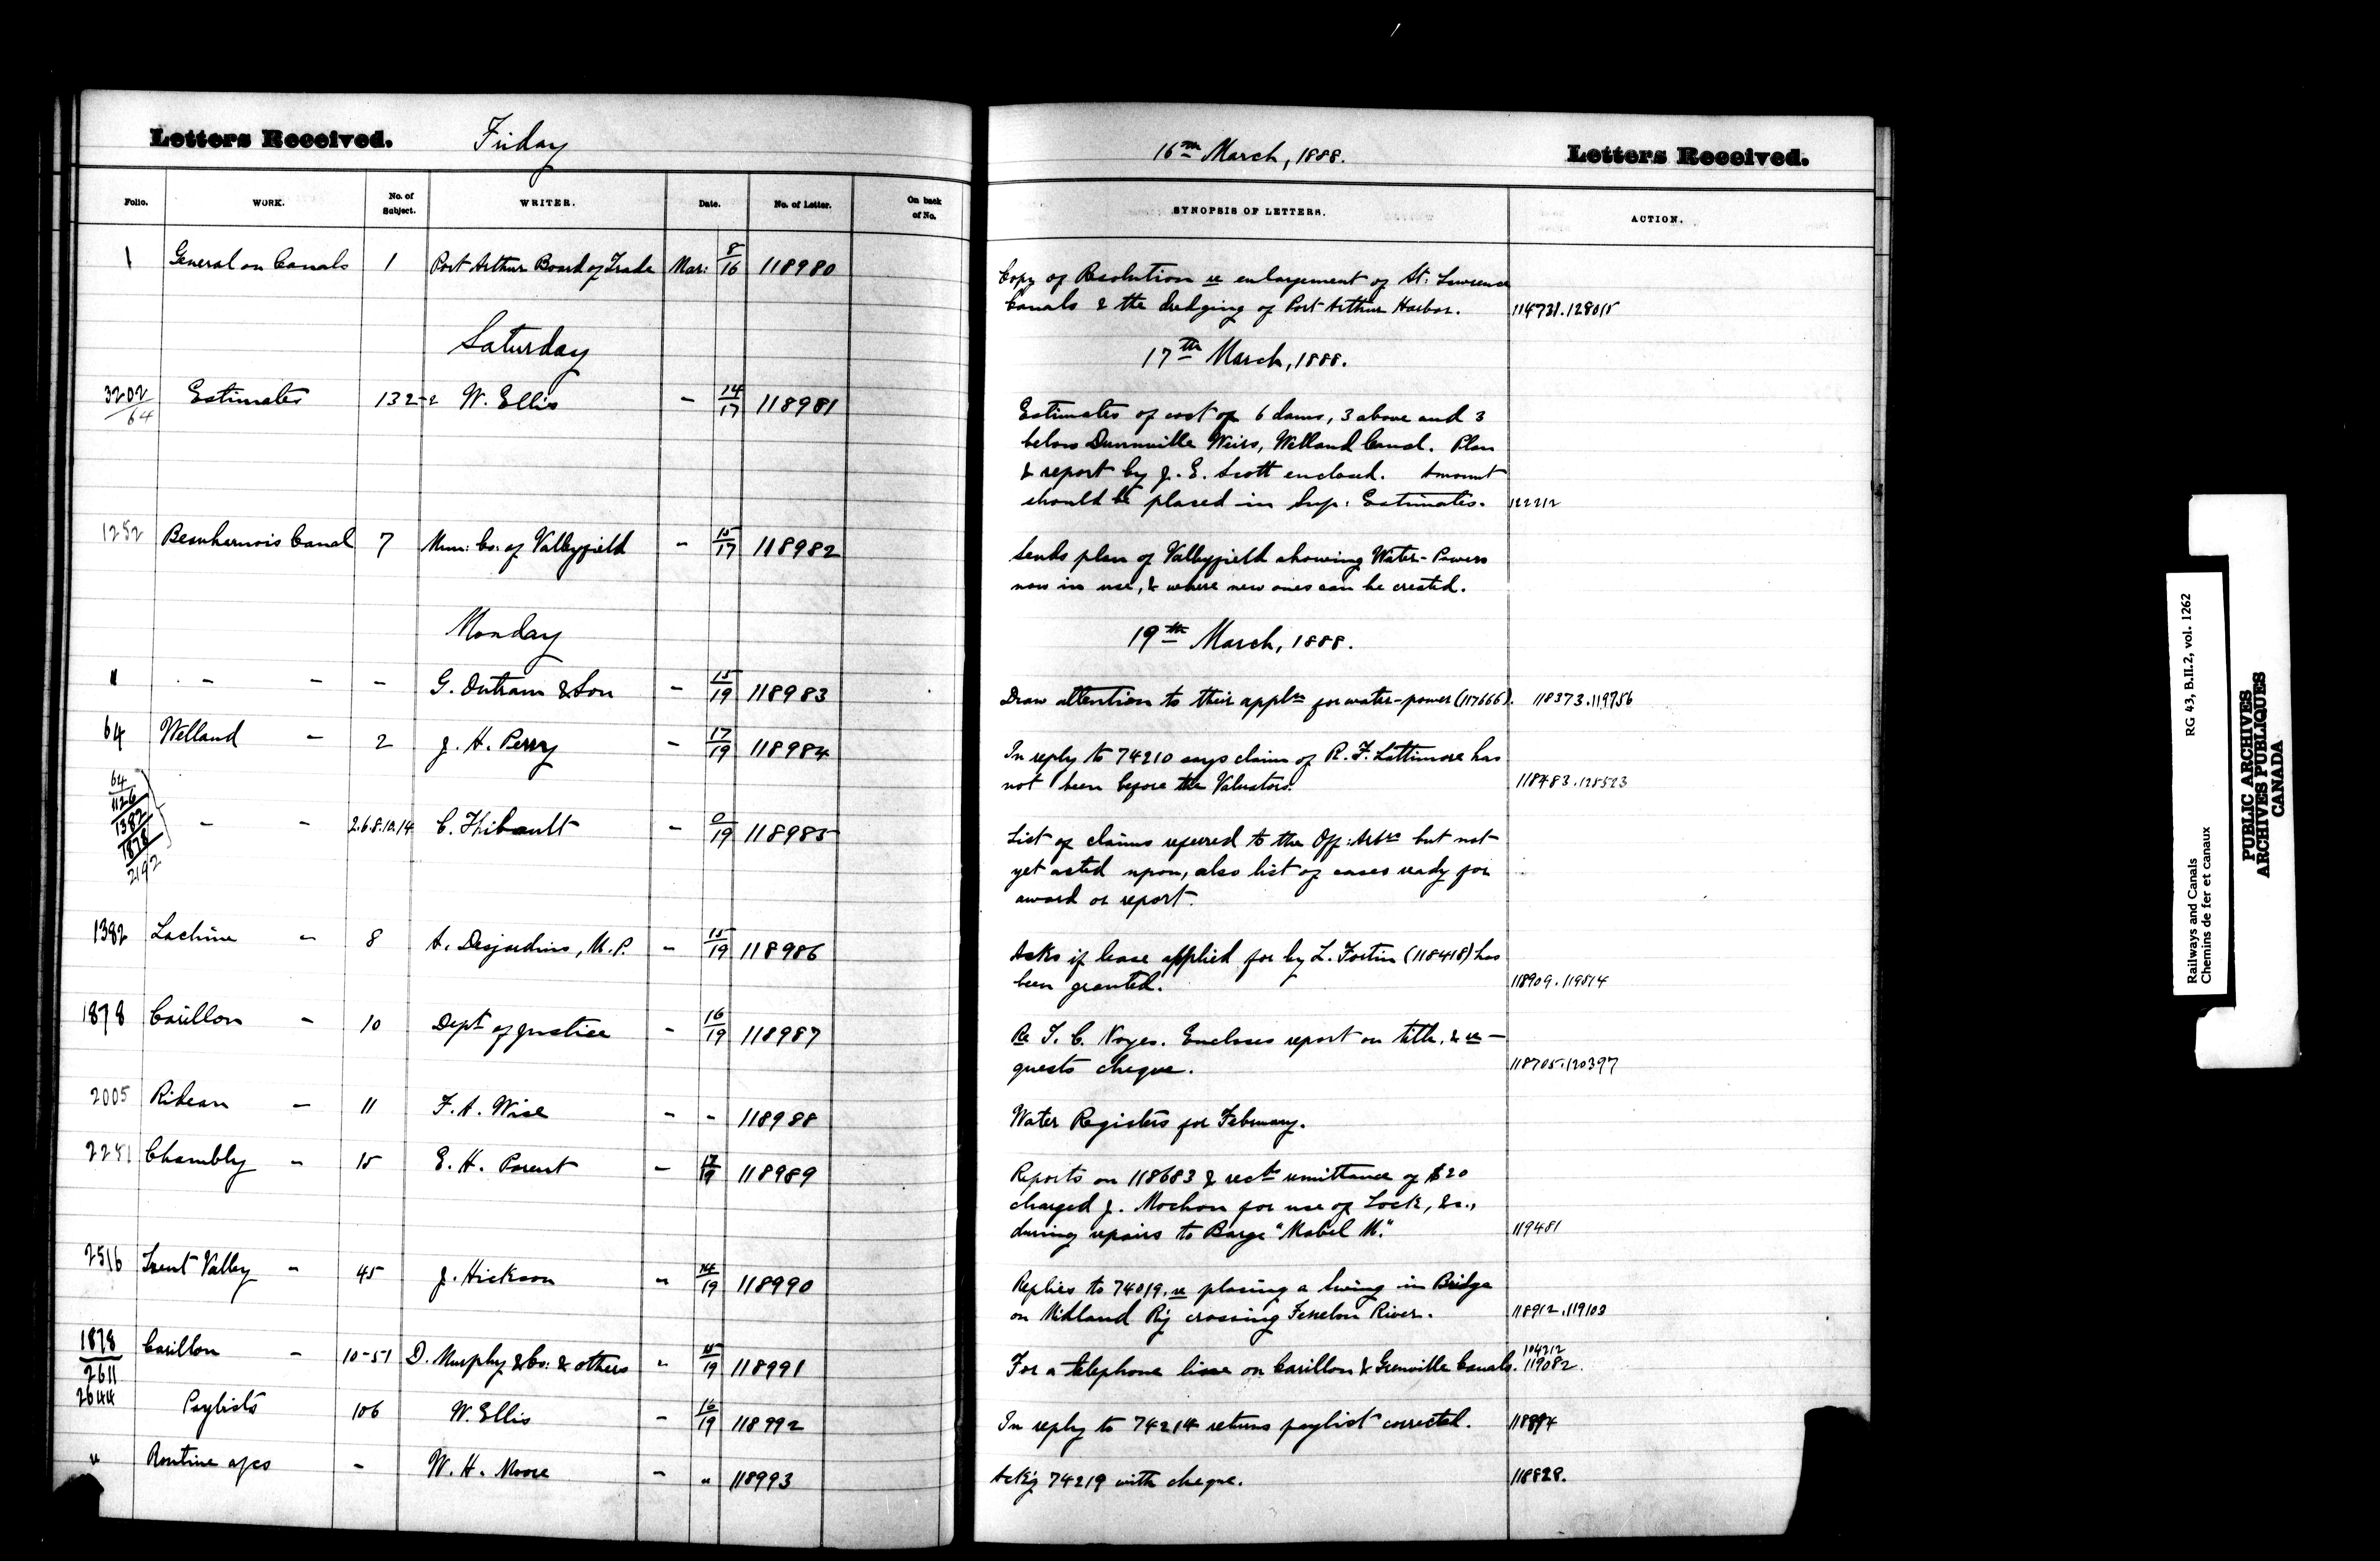 Letters Received. Friday
16th March, 1888. Letters Received.
Folio. WORK. No. of Subject. WRITER. Date. No. of Letter. On back of No.
SYNOPSIS OF LETTERS. ACTION.
1 General on Canals 1 Port Arthur Board of Trade Mar: 8/16 118980
Copy of Resolution re enlargement of St: Lawrence
Canals & the dredging of Port Arthur Harbor. 114731.128015
Saturday
17th March, 1888.
3202/64 Estimates 132-2 W. Ellis - 14/17 118981
Estimates of cost of 6 dams, 3 above and 3
below Dunnville Weirs, Welland Canal. Plan
& report by J. E. Scott enclosed. Amount
should be placed in Sup: Estimates. 122212
1252 Beauharnois Canal 7 Mun: Co: of Valleyfield - 15/17 118982
Sends plan of Valleyfield showing Water-Powers
now in use, & where new ones can be created.
Monday
19th March, 1888.
" - - - G. Outram & Son - 15/19 118983
Draw attention to their appln for water-power (117666). 118373.119756
64 Welland - 2 J. H. Perry - 17/19 118984
In reply to 74210 says claim of R. F. Lattimore has
not been before the Valuators. 118483.128523
64/1126/1382/1878/2192 - - 2.6.8.10.14 C. Thibault - 0/19 118985
List of claims referred to the Off: Arbrs but not
yet acted upon, also list of cases ready for
award or report.
1382 Lachine - 8 A. Desjardins, M.P. - 15/19 118986
Asks if lease applied for by L. Fortin (118418) has
been granted. 118909.119814
1878 Carillon - 10 Dept of Justice - 16/19 118987
Re T. C. Noyes. Encloses report on title, & re-
quests cheque. 118705.120397
2005 Rideau - 11 F. A. Wise - - 118988
Water Registers for February.
2251 Chambly - 15 E. H. Parent - 17/19 118989
Reports on 118683 & rects remittance of $20
charged J. Mochon for use of Lock, &c.,
during repairs to Barge "Mabel M." 119481
2516 Trent Valley - 45 J. Hickson - 14/19 118990
Replies to 74019, re placing a Swing in Bridge
on Midland Ry crossing Fenelon River. 118912.119103
1878/2611 Carillon - 10-51 D. Murphy & Co: & others - 15/19 118991
For a telephone line on Carillon & Grenville Canals. 104212 119082.
2644 Paylists 106 W. Ellis - 16/19 118992
In reply to 74214 returns paylist corrected. 118894
" Routine a/cs - W. H. Moore - " 118993
Ackg 74219 with cheque. 118828.
RG 43, B.II.2, vol. 1262
Railways and Canals
Chemins de fer et canaux
PUBLIC ARCHIVES
ARCHIVES PUBLIQUES
CANADA